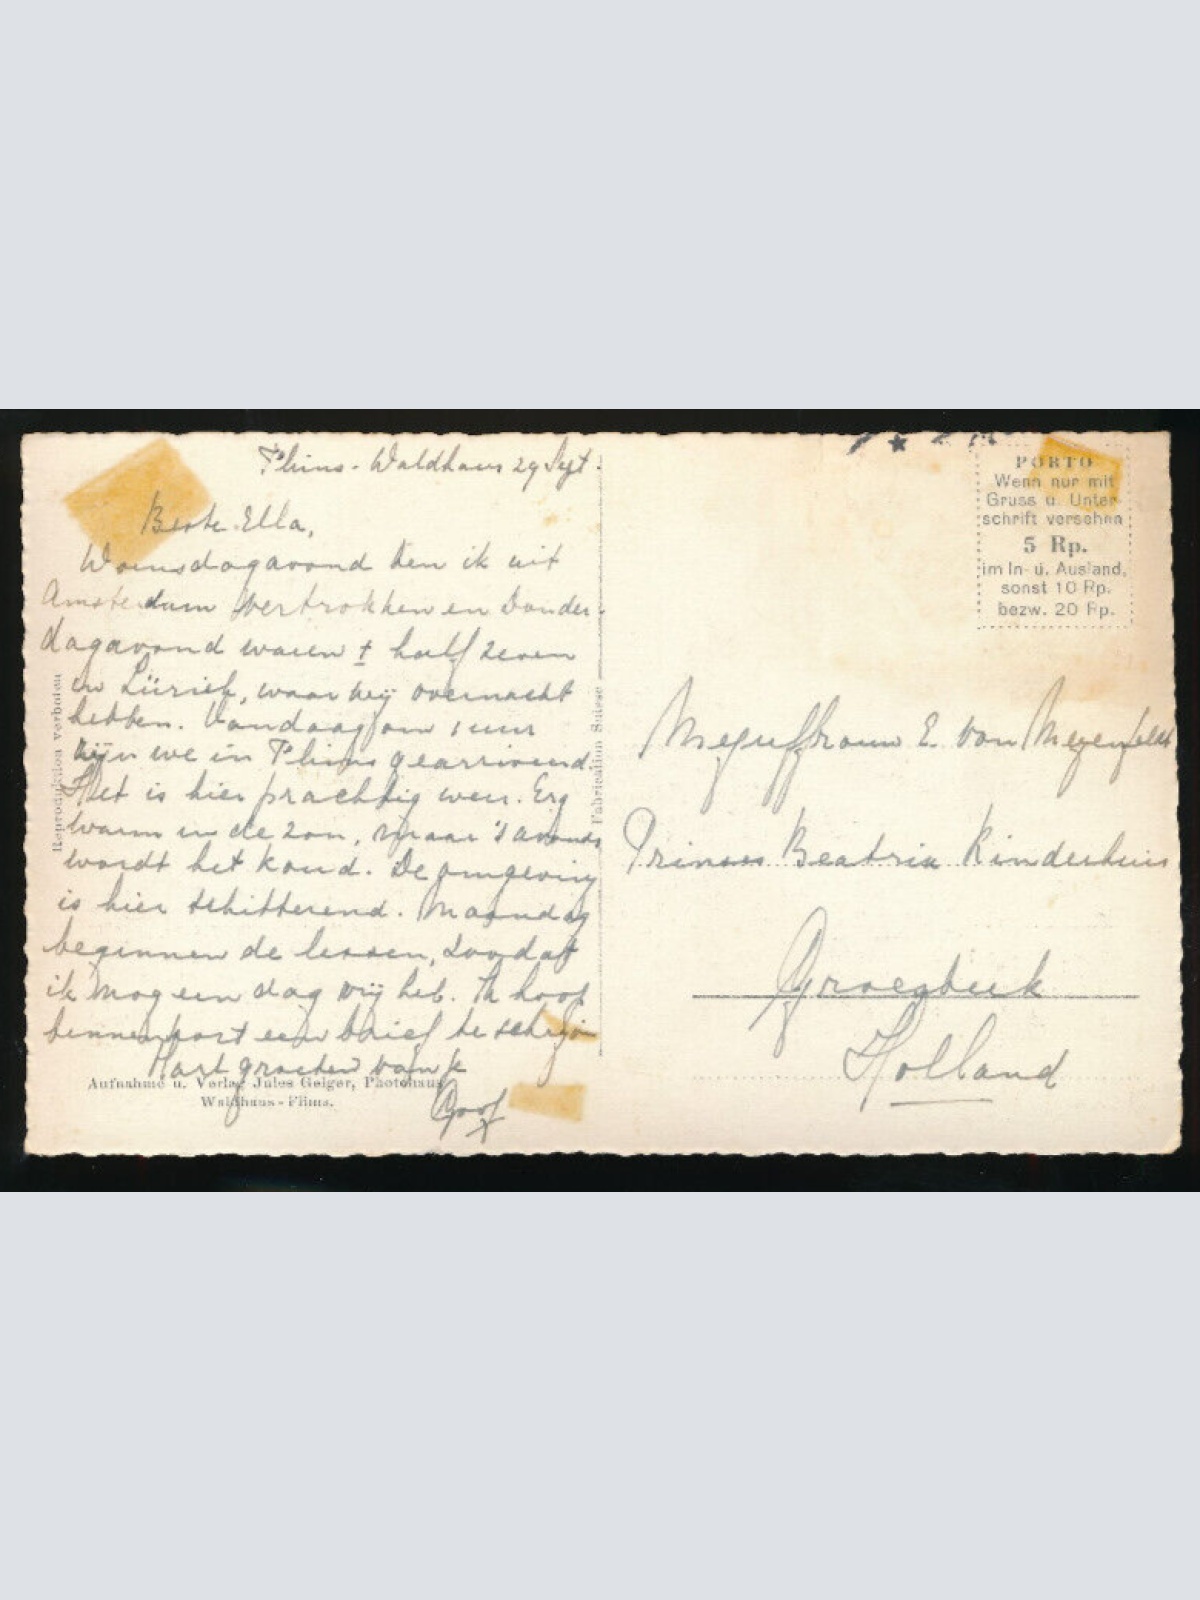 Flims - Waldhaus 29 Sept.
Beste Ella,
Woensdagavond ben ik uit
Amsterdam vertrokken en Donder-
dagavond waren ± half zeven
in Zürich, waar wij overnacht
hebben. Vandaag om 1 uur
zijn we in Flims gearriveerd.
Het is hier prachtig weer. Erg
warm in de zon, maar 's avonds
wordt het koud. De omgeving
is hier schitterend. Maandag
beginnen de lessen, zoodat
ik nog een dag vrij heb. Ik hoop
binnenkort een brief te schrijven
Hart groeten van je
Aufnahme u. Verlag Jules Geiger, Photohaus
Waldhaus-Flims.
Reproduktion verboten
Fabrication Suisse
PORTO
Wenn nur mit
Gruss u. Unter-
schrift versehen
5 Rp.
im In- u. Ausland,
sonst 10 Rp.
bezw. 20 Rp.
Mejuffrouw E. von
Prinses Beatrix Kinderhuis
Groesbeek
Holland